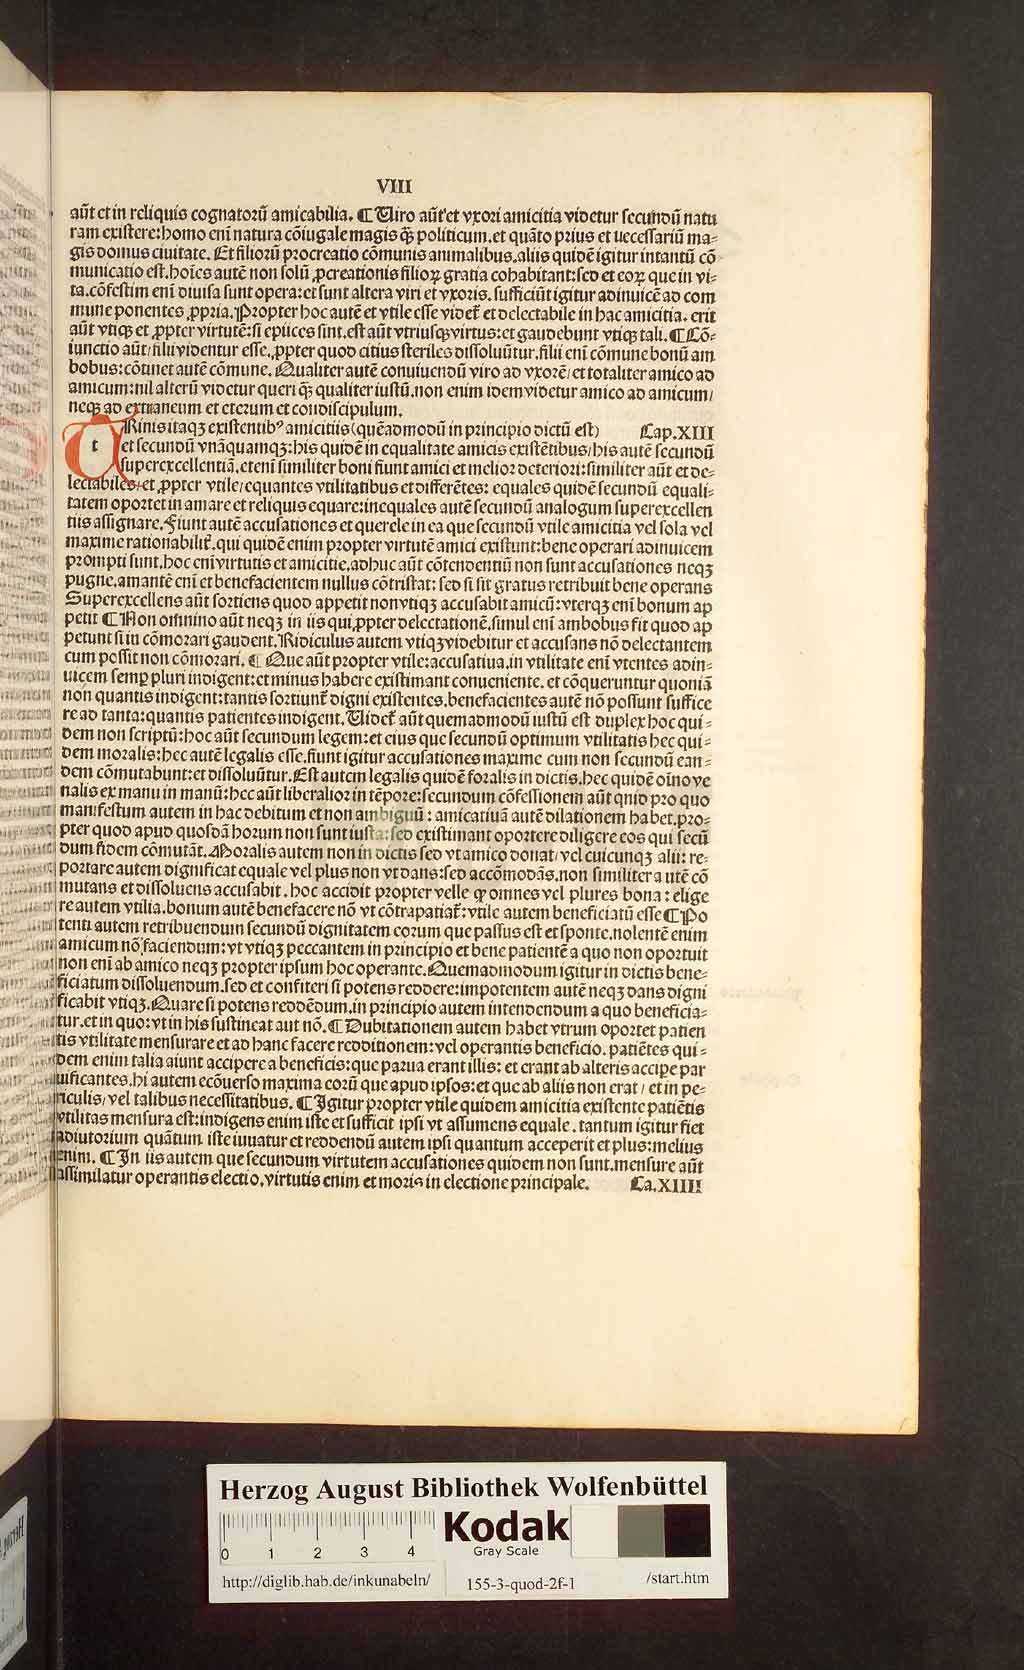 VIII
aūt et in reliquis cognatorū amicabilia. ¶ Uiro aūt et vxori amicitia videtur secundū natu
ram existere: homo eni natura cōiugale magis qȝ politicum. et quāto prius et necessariū ma-
gis domus ciuitate. Et filiorū procreatio cōmunis animalibus. aliis quidē igitur intantū cō
municatio est. hoīes autē non solū ꝓcreationis filioꝝ gratia cohabitant: sed et eoꝝ que in vi-
ta. cōfestim eni diuisa sunt opera: et sunt altera viri et vxoris. sufficiūt igitur adinuicē ad com
mune ponentes ꝓpria. Propter hoc autē et vtile esse videt̄ et delectabile in hac amicitia. erit
aūt vtiqȝ et ꝓpter virtutē: si epiices sint. est aūt vtriusqȝ virtus: et gaudebunt vtiqȝ tali. ¶ Cō-
iunctio aūt/ filii videntur esse. ꝓpter quod citius steriles dissoluūtur. filii eni cōmune bonū am
bobus: cōtinet autē cōmune. Qualiter autē conuiuendū viro ad vxorē/ et totaliter amico ad
amicum: nil alterū videtur queri qȝ qualiter iustū. non enim idem videtur amico ad amicum/
neqȝ ad extraneum et eterum et condiscipulum.
t Rinis itaqȝ existentibꝰ amicitiis (quēadmodū in principio dictū est) Cap.XIII
et secundū vnāquamqȝ: his quidē in equalitate amicis existētibus/ his autē secundū
superexcellentiā. eteni similiter boni fiunt amici et melior deteriori: similiter aūt et de-
lectabiles/ et ꝓpter vtile/ equantes vtilitatibus et differētes: equales quidē secundū equali-
tatem oportet in amare et reliquis equare: inequales autē secundū analogum superexcellen
tiis assignare. Fiunt autē accusationes et querele in ea que secundū vtile amicitia vel sola vel
maxime rationabilit̄. qui quidē enim propter virtutē amici existunt: bene operari adinuicem
prompti sunt. hoc eni virtutis et amicitie. adhuc aūt cōtendentiū non sunt accusationes neqȝ
pugne. amantē eni et benefacientem nullus cōtristat: sed si sit gratus retribuit bene operans
Superexcellens aūt sortiens quod appetit non vtiqȝ accusabit amicū: vterqȝ eni bonum ap
petit ¶ Non omnino aūt neqȝ in iis qui ꝓpter delectationē. simul eni ambobus fit quod ap
petunt si in cōmorari gaudent. Ridiculus autem vtiqȝ videbitur et accusans nō delectantem
cum possit non cōmorari. ¶ Que aūt propter vtile: accusatiua. in vtilitate eni vtentes adin-
uicem semꝑ pluri indigent: et minus habere existimant conueniente. et cōqueruntur quoniā
non quantis indigent: tantis sortiunt̄ digni existentes. benefacientes autē nō possunt suffice
re ad tanta: quantis patientes indigent. Uidet̄ aūt quemadmodū iustū est duplex hoc qui-
dem non scriptū: hoc aūt secundum legem: et eius que secundū optimum vtilitatis hec qui-
dem moralis: hec autē legalis esse. fiunt igitur accusationes maxime cum non secundū ean-
dem cōmutabunt: et dissoluūtur. Est autem legalis quidē foralis in dictis. hec quidē oīno ve
nalis ex manu in manū: hec aūt liberalior in tēpore: secundum cōfessionem aūt quid pro quo
manifestum autem in hac debitum et non ambiguū: amicatiuā autē dilationem habet. pro-
pter quod apud quosdā horum non sunt iusta: sed existimant oportere diligere eos qui secū
dum fidem cōmutāt. Moralis autem non in dictis sed vt amico donat/ vel cuicunqȝ alii: re-
portare autem dignificat equale vel plus non vt dans: sed accōmodās. non similiter a utē cō
mutans et dissoluens accusabit. hoc accidit propter velle ꝙ omnes vel plures bona: elige
re autem vtilia. bonum autē benefacere nō vt cōtrapatiat̄: vtile autem beneficiatū esse ¶ Po
tenti autem retribuendum secundū dignitatem eorum que passus est et sponte. nolentē enim
amicum nō faciendum: vt vtiqȝ peccantem in principio et bene patientē a quo non oportuit
non eni ab amico neqȝ propter ipsum hoc operante. Quemadmodum igitur in dictis bene-
ficiatum dissoluendum. sed et confiteri si potens reddere: impotentem autē neqȝ dans digni
ficabit vtiqȝ. Quare si potens reddēdum. in principio autem intendendum a quo beneficia-
tur. et in quo: vt in his sustineat aut nō. ¶ Dubitationem autem habet vtrum oportet patien
tis vtilitate mensurare et ad hanc facere redditionem: vel operantis beneficio. patiētes qui-
dem enim talia aiunt accipere a beneficis: que parua erant illis: et erant ab alteris accipe par
uificantes. hi autem ecōuerso maxima eorū que apud ipsos: et que ab aliis non erat/ et in pe-
riculis/ vel talibus necessitatibus. ¶ Igitur propter vtile quidem amicitia existente patiētis
vtilitas mensura est: indigens enim iste et sufficit ipsi vt assumens equale. tantum igitur fiet
adiutorium quātum iste iuuatur et reddendū autem ipsi quantum acceperit et plus: melius
enim. ¶ In iis autem que secundum virtutem accusationes quidem non sunt. mensure aūt
assimilatur operantis electio. virtutis enim et moris in electione principale. Ca.XIIII
Herzog August Bibliothek Wolfenbüttel
0 1 2 3 4
Kodak
Gray Scale
http://diglib.hab.de/inkunabeln/ 155-3-quod-2f-1 /start.htm